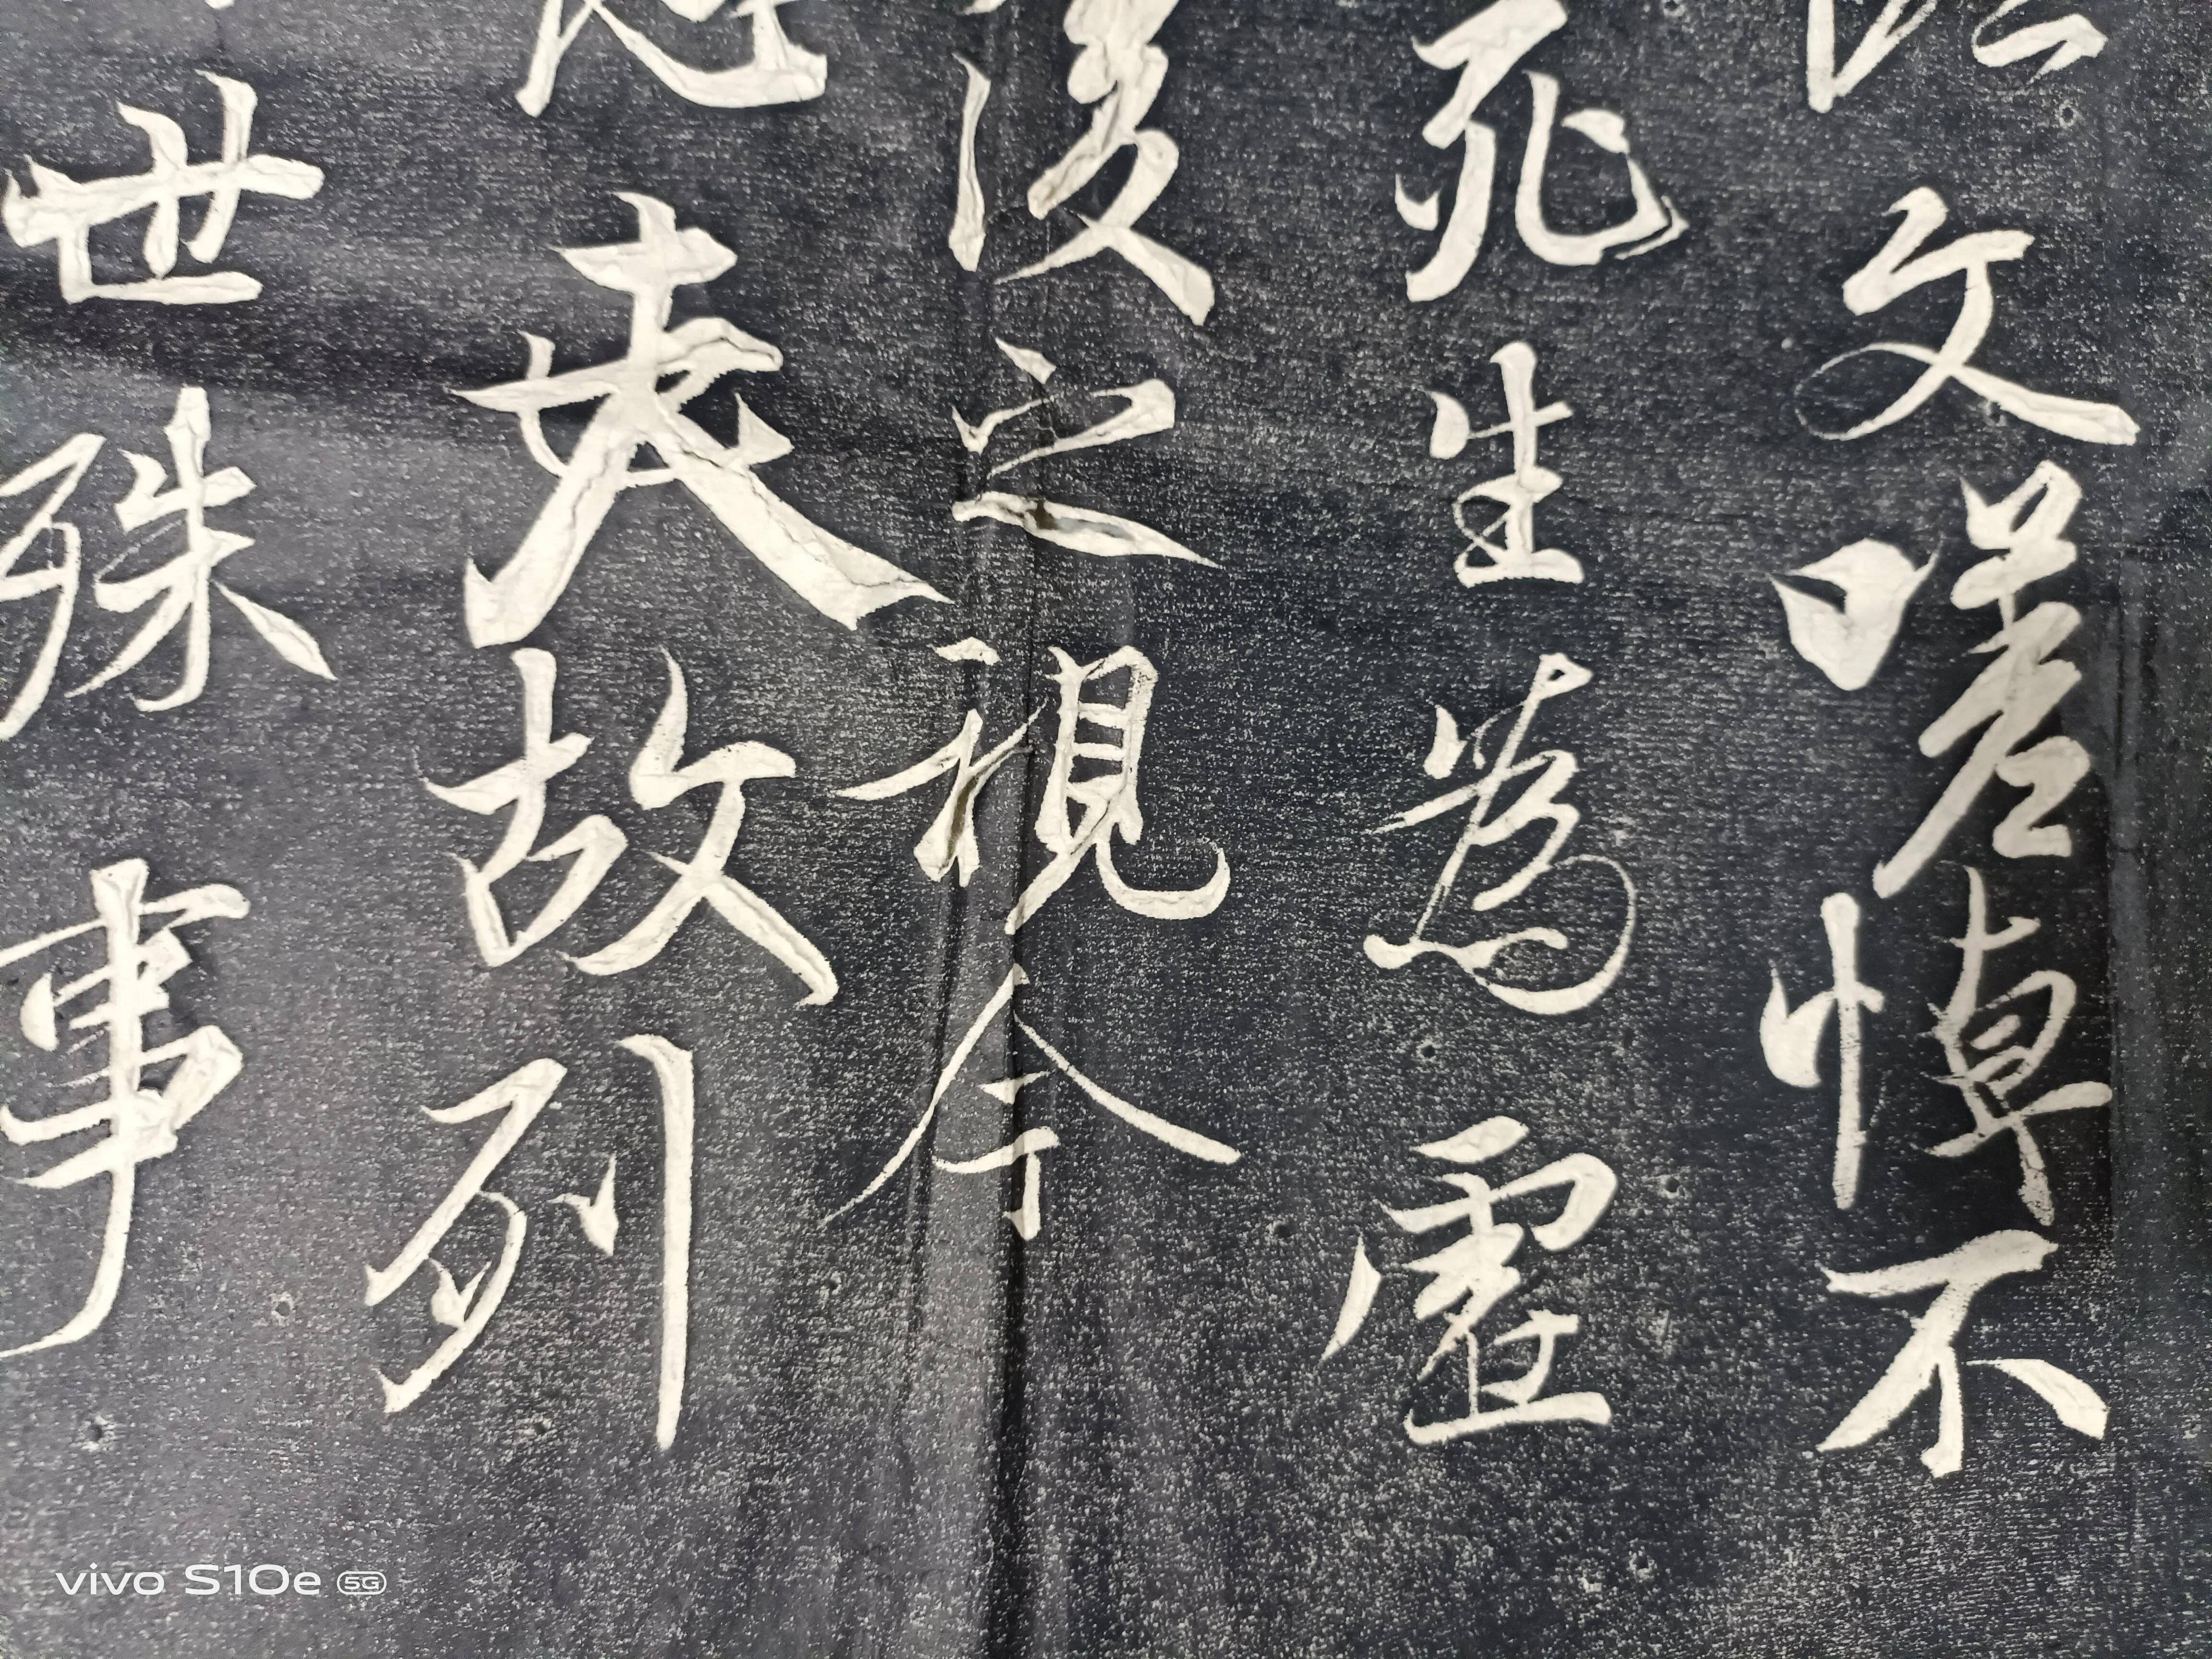 文嗟悼不
死生為虛
後之視今
夫故列
世殊事
vivo S10e 5G